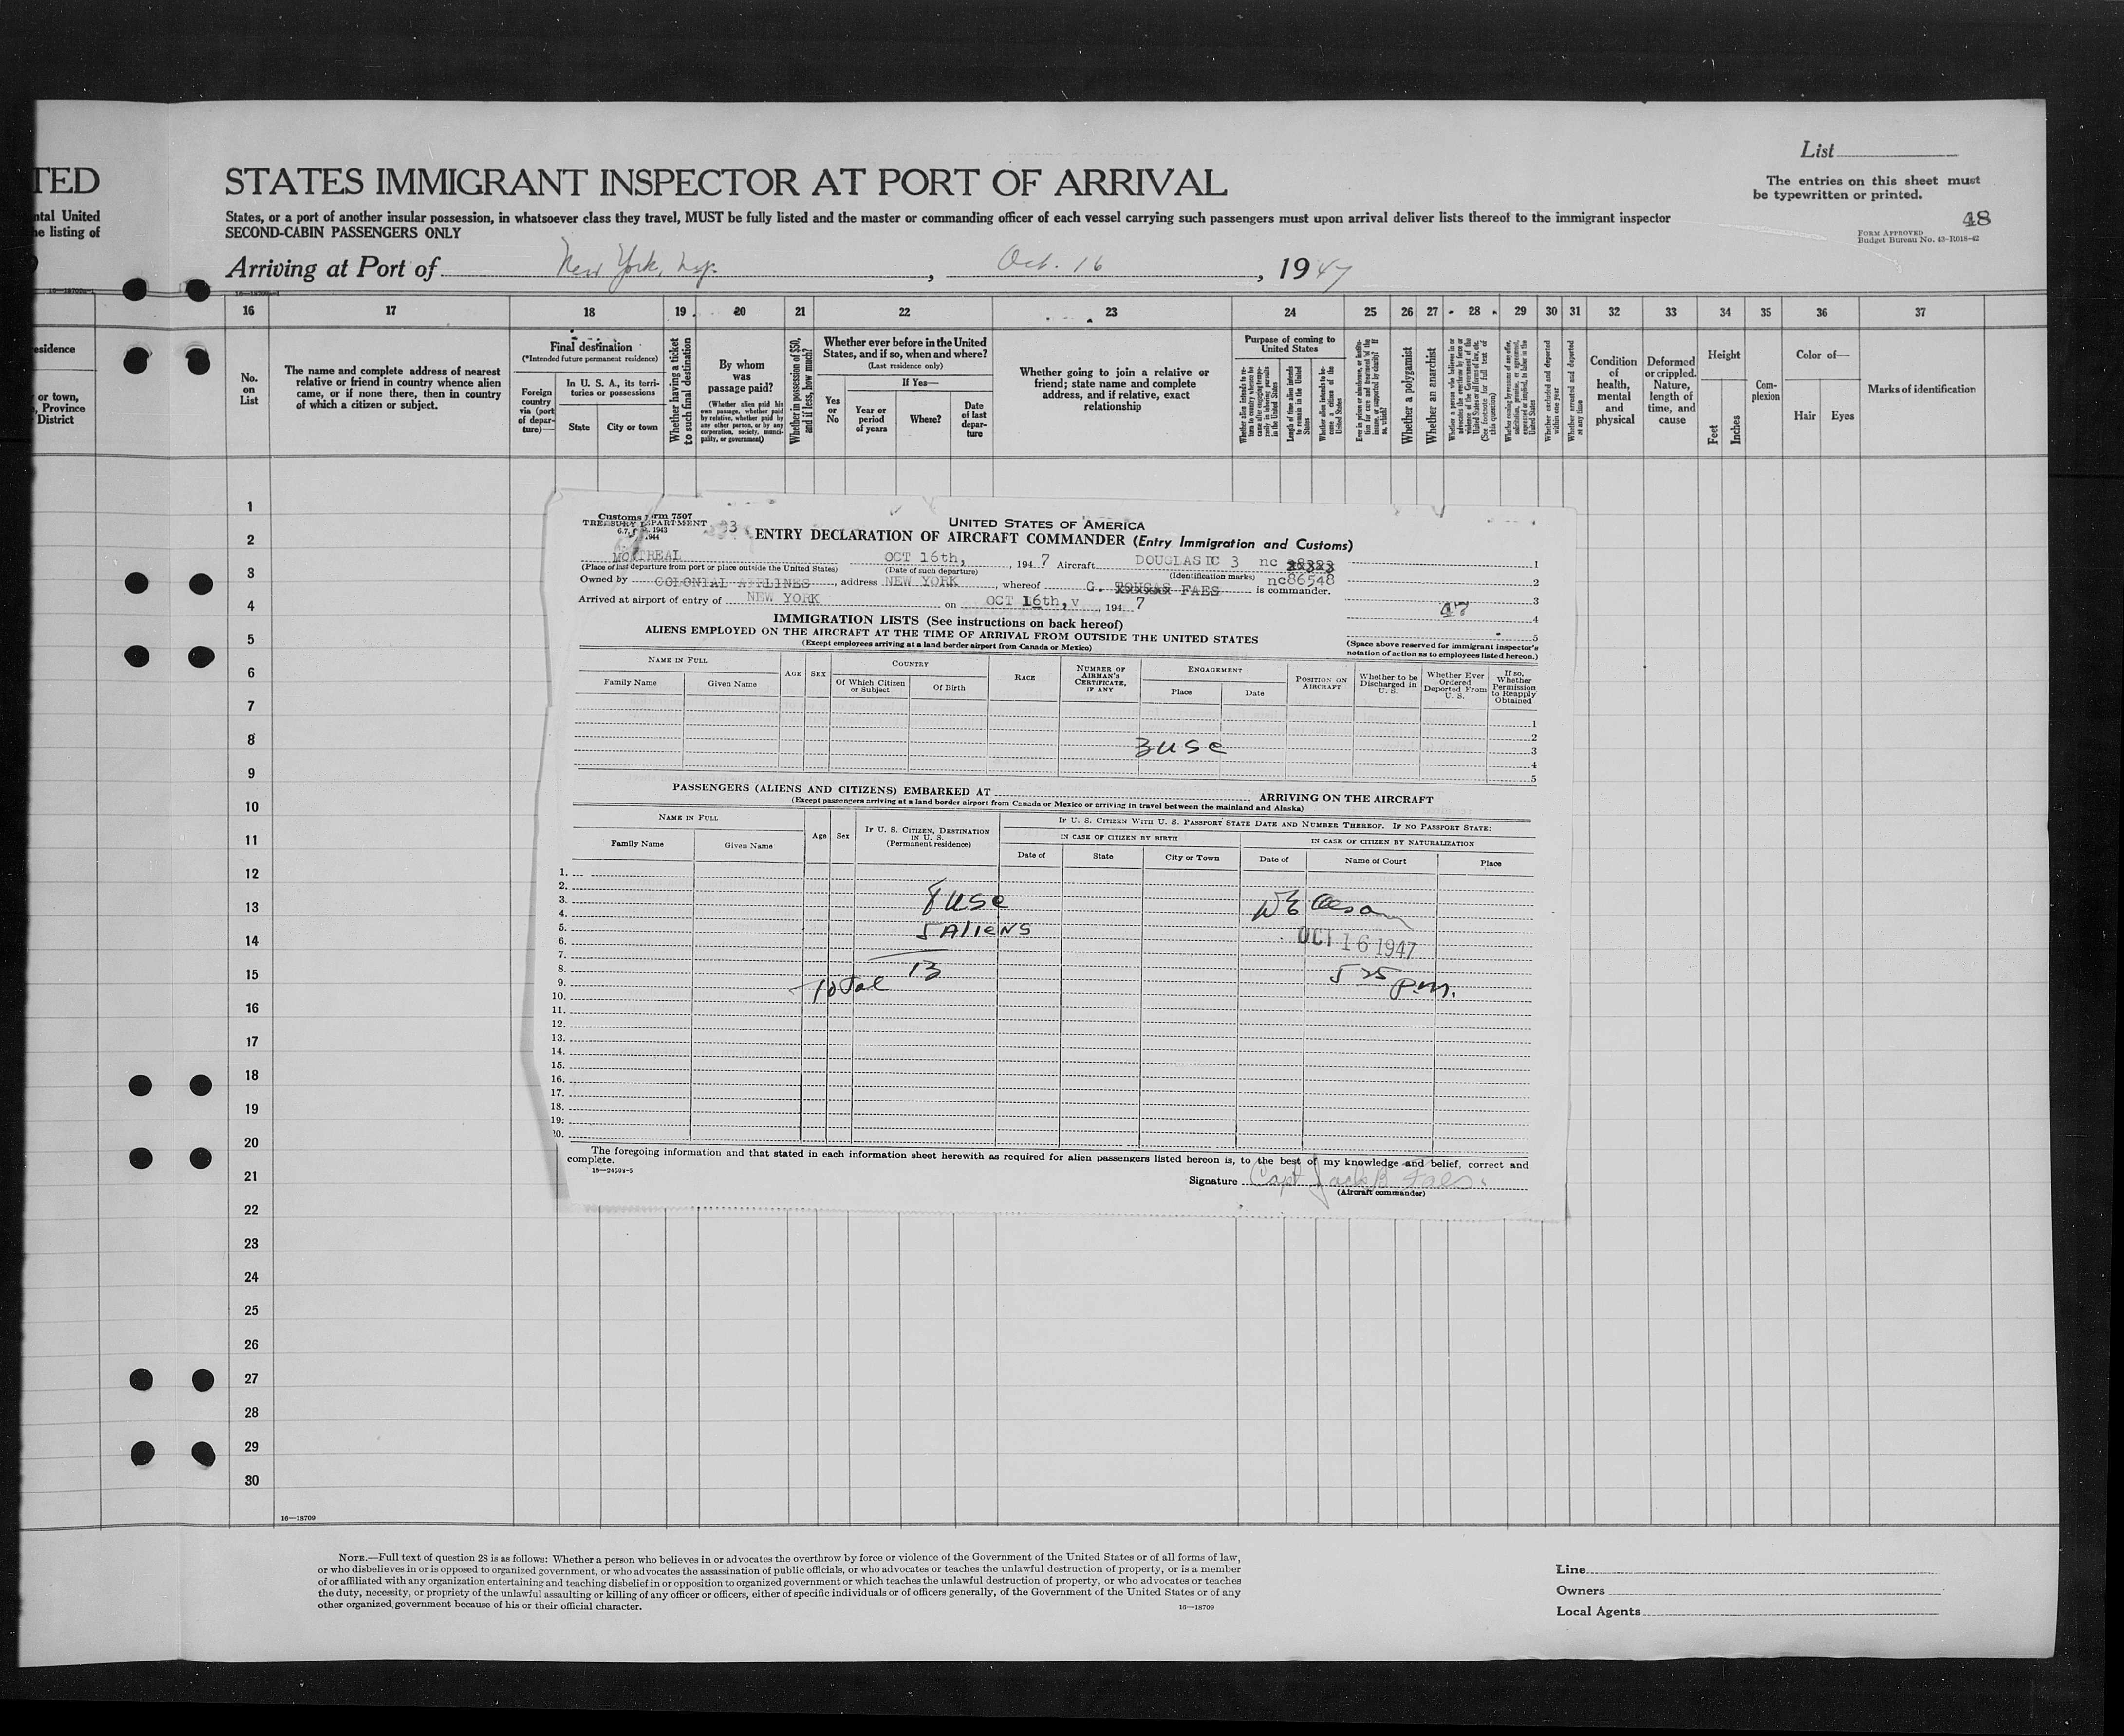 TED
ntal United
he listing of
esidence
or town,
, Province
District
List
The entries on this sheet must
be typewritten or printed.
48
FORM APPROVED
Budget Bureau No. 43-R018-42
STATES IMMIGRANT INSPECTOR AT PORT OF ARRIVAL
States, or a port of another insular possession, in whatsoever class they travel, MUST be fully listed and the master or commanding officer of each vessel carrying such passengers must upon arrival deliver lists thereof to the immigrant inspector
SECOND-CABIN PASSENGERS ONLY
Arriving at Port of New York, , Oct. 16 , 1947
16 17 18 19 20 21 22 23 24 25 26 27 28 29 30 31 32 33 34 35 36 37
No. on List
The name and complete address of nearest relative or friend in country whence alien came, or if none there, then in country of which a citizen or subject.
Final destination
(*Intended future permanent residence)
Foreign country via (port of departure)—
In U. S. A., its territories or possessions
State
City or town
Whether having a ticket to such final destination
By whom was passage paid?
(Whether alien paid his own passage, whether paid by relative, whether paid by any other person, or by any corporation, society, municipality, or government)
Whether in possession of $50, and if less, how much?
Whether ever before in the United States, and if so, when and where?
(Last residence only)
Yes or No
If Yes—
Year or period of years
Where?
Date of last departure
Whether going to join a relative or friend; state name and complete address, and if relative, exact relationship
Purpose of coming to United States
Length of time alien intends to remain in the United States
Whether alien intends to become a citizen of the United States
Whether a polygamist
Whether an anarchist
Whether excluded and deported within one year
Whether arrested and deported at any time
Condition of health, mental and physical
Deformed or crippled. Nature, length of time, and cause
Height
Feet
Inches
Complexion
Color of—
Hair
Eyes
Marks of identification
1
2
3
4
5
6
7
8
9
10
11
12
13
14
15
16
17
18
19
20
21
22
23
24
25
26
27
28
29
30
Customs Form 7507
TREASURY DEPARTMENT
UNITED STATES OF AMERICA
ENTRY DECLARATION OF AIRCRAFT COMMANDER (Entry Immigration and Customs)
MONTREAL OCT 16th, , 1947 Aircraft DOUGLAS DC 3 nc
(Place of last departure from port or place outside the United States) (Date of such departure) (Identification marks) nc86548
Owned by COLONIAL AIRLINES , address NEW YORK , whereof G. FAES is commander.
Arrived at airport of entry of NEW YORK on OCT 16th, , 1947
47
1
2
3
4
5
(Space above reserved for immigrant inspector's notation of action as to employees listed hereon.)
IMMIGRATION LISTS (See instructions on back hereof)
ALIENS EMPLOYED ON THE AIRCRAFT AT THE TIME OF ARRIVAL FROM OUTSIDE THE UNITED STATES
(Except employees arriving at a land border airport from Canada or Mexico)
NAME IN FULL
Family Name
Given Name
AGE
SEX
COUNTRY
Of Which Citizen or Subject
Of Birth
RACE
NUMBER OF AIRMAN'S CERTIFICATE, IF ANY
ENGAGEMENT
Place
Date
POSITION ON AIRCRAFT
Whether to be Discharged in U. S.
Whether Ever Ordered Deported From U. S.
If so, Whether Permission to Reapply Obtained
1
2
3
4
5
3 USC
PASSENGERS (ALIENS AND CITIZENS) EMBARKED AT ARRIVING ON THE AIRCRAFT
(Except passengers arriving at a land border airport from Canada or Mexico or arriving in travel between the mainland and Alaska)
NAME IN FULL
Family Name
Given Name
Age
Sex
IF U. S. CITIZEN, DESTINATION IN U. S.
(Permanent residence)
IF U. S. CITIZEN WITH U. S. PASSPORT STATE DATE AND NUMBER THEREOF. IF NO PASSPORT STATE:
IN CASE OF CITIZEN BY BIRTH
IN CASE OF CITIZEN BY NATURALIZATION
Date of
State
City or Town
Date of
Name of Court
Place
1.
2.
3.
4.
5.
6.
7.
8.
9.
10.
11.
12.
13.
14.
15.
16.
17.
18.
19.
8 USC
5 Aliens
Total 13
OCT 16 1947
5 25 p.m.
The foregoing information and that stated in each information sheet herewith as required for alien passengers listed hereon is, to the best of my knowledge and belief, correct and
complete.
16—24593-5
Signature Capt Jack B Faes
(Aircraft commander)
16—18709
NOTE.—Full text of question 28 is as follows: Whether a person who believes in or advocates the overthrow by force or violence of the Government of the United States or of all forms of law,
or who disbelieves in or is opposed to organized government, or who advocates the assassination of public officials, or who advocates or teaches the unlawful destruction of property, or is a member
of or affiliated with any organization entertaining and teaching disbelief in or opposition to organized government or which teaches the unlawful destruction of property, or who advocates or teaches
the duty, necessity, or propriety of the unlawful assaulting or killing of any officer or officers, either of specific individuals or of officers generally, of the Government of the United States or of any
other organized government because of his or their official character.
16—18709
Line
Owners
Local Agents